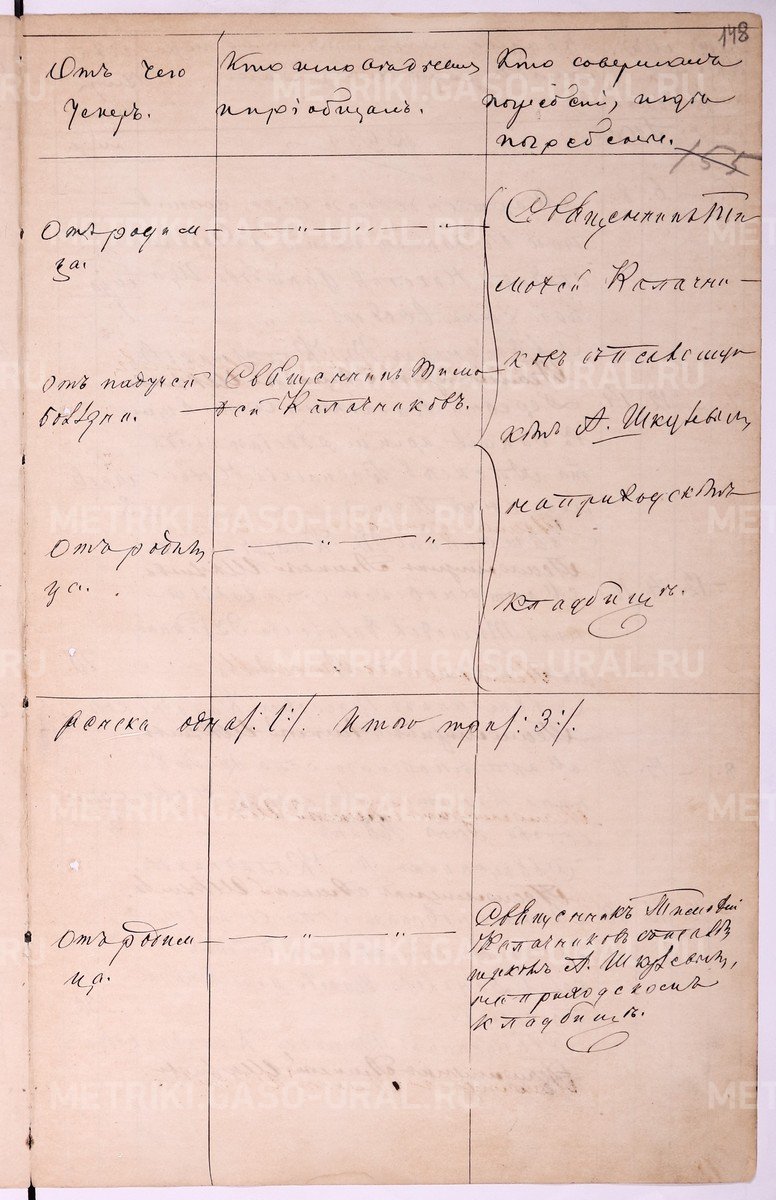 148
Отъ чего
умеръ.
Кто исповѣдывалъ
и пріобщалъ.
Кто совершалъ
погребеніе, и гдѣ
погребены.
155
Отъ родим
ца.
Священникъ Ти
моѳей Калачни-
ковъ съ псаломщи
комъ А. Шкуевымъ
на приходскомъ
кладбищѣ.
отъ падучей
болѣзни.
Священникъ Тимо
ѳей Калачниковъ.
Отъ родим
ца.
женска одна /:1:/. Итого три /:3:/.
Отъ родим
ца.
Священникъ Тимоѳей
Калачниковъ съ псаломщ
икомъ А. Шкуевымъ,
на приходскомъ
кладбищѣ.
METRIKI.GASO-URAL.RU